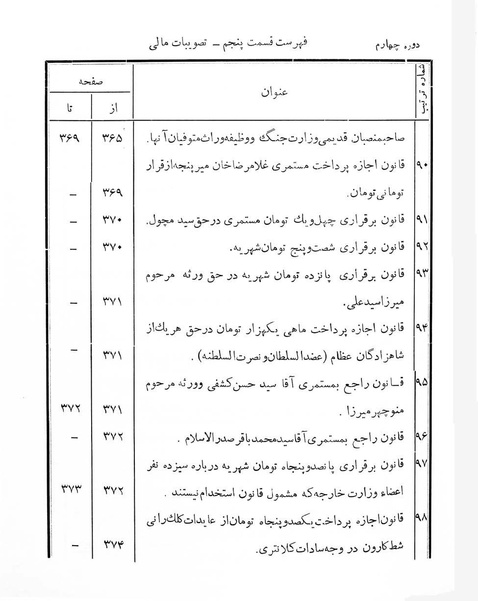 دوره چهارم
فهرست قسمت پنجم – تصویبات مالی
شماره ترتیب
عنوان
صفحه
از
تا
صاحبمنصبان قدیمی وزارت جنگ ووظیفه وراث متوفیان آنها. ۳۶۵ ۳۶۹
۹۰ قانون اجازه پرداخت مستمری غلامرضاخان میرپنجه ازقرار
تومانی تومان. ۳۶۹ –
۹۱ قانون برقراری چهل ویک تومان مستمری درحق سید مچول. ۳۷۰ –
۹۲ قانون برقراری شصت وپنج تومان شهریه. ۳۷۰ –
۹۳ قانون برقراری پانزده تومان شهریه در حق ورثه مرحوم
میرزاسیدعلی. ۳۷۱ –
۹۴ قانون اجازه پرداخت ماهی یکهزار تومان درحق هریک از
شاهزادگان عظام (عضدالسلطان ونصرت السلطنه) . ۳۷۱ –
۹۵ قانون راجع بمستمری آقا سید حسن کشفی وورثه مرحوم
منوچهرمیرزا . ۳۷۱ ۳۷۲
۹۶ قانون راجع بمستمری آقاسیدمحمدباقر صدرالاسلام . ۳۷۲ –
۹۷ قانون برقراری پانصدوپنجاه تومان شهریه درباره سیزده نفر
اعضاء وزارت خارجه که مشمول قانون استخدام نیستند . ۳۷۲ ۳۷۳
۹۸ قانون اجازه پرداخت یکصدوپنجاه تومان از عایدات کلک رانی
شط کارون در وجه سادات کلانتری. ۳۷۴ –